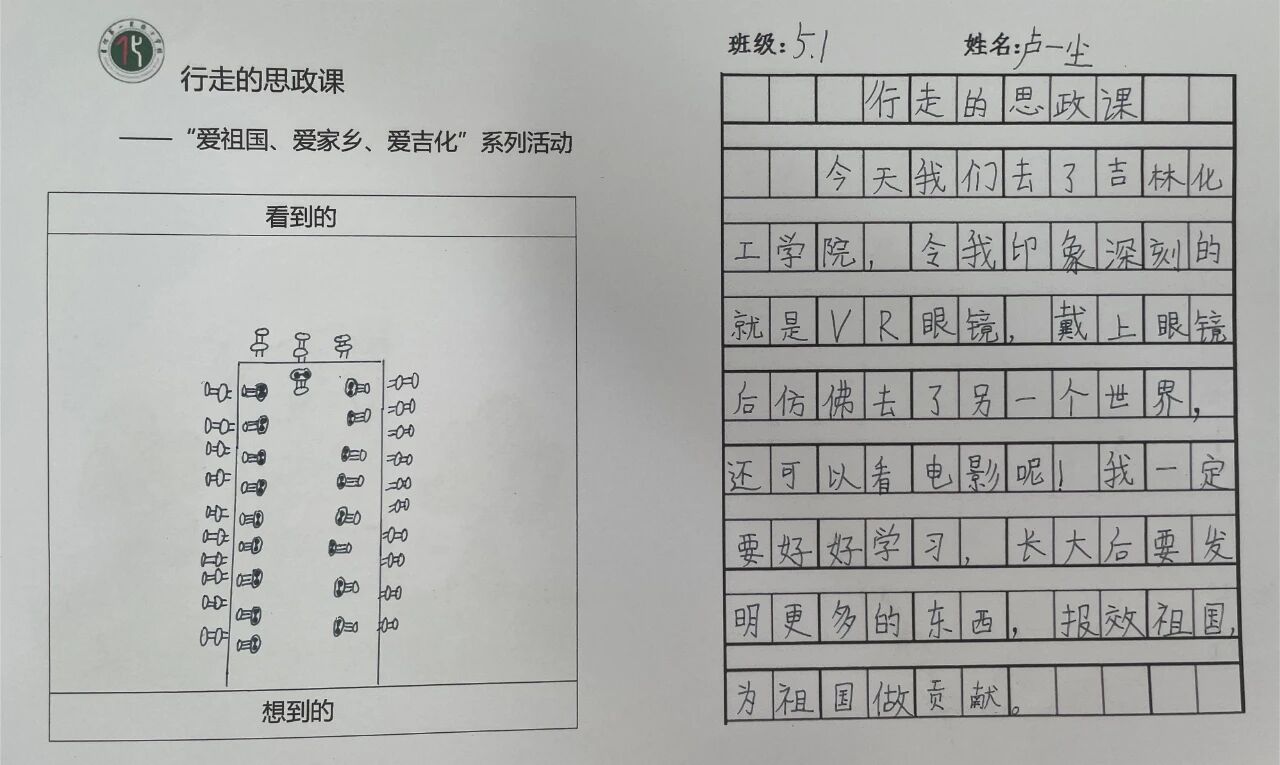 行走的思政课
——“爱祖国、爱家乡、爱吉化”系列活动
看到的
想到的
班级:5.1 姓名:卢一尘
行走的思政课
今天我们去了吉林化
工学院,令我印象深刻的
就是VR眼镜,戴上眼镜
后仿佛去了另一个世界,
还可以看电影呢!我一定
要好好学习,长大后要发
明更多的东西,报效祖国,
为祖国做贡献。